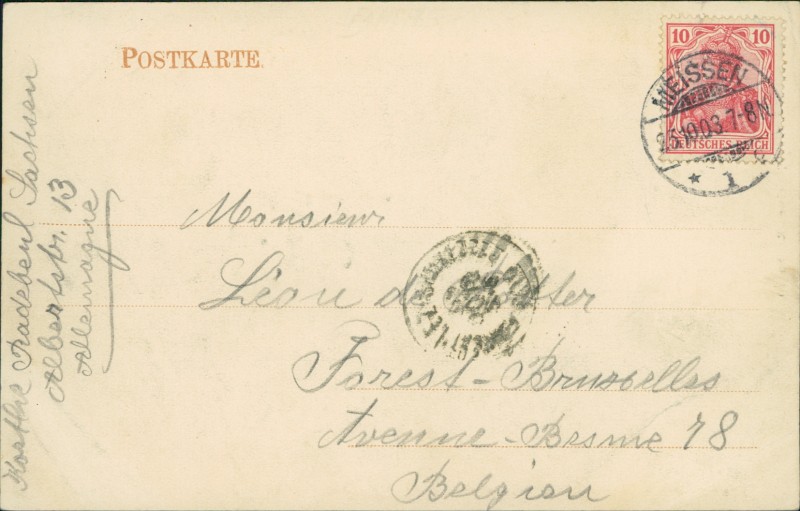 POSTKARTE.
10 10
DEUTSCHES REICH
MEISSEN
25.10.03.7-8N.
* 1 c
Monsieur
Léon de Potter
Forest-Bruxelles
Avenue-Besme 78
Belgien
Kaethe Radebeul Sachsen
Albertstr. 13
Allemagne